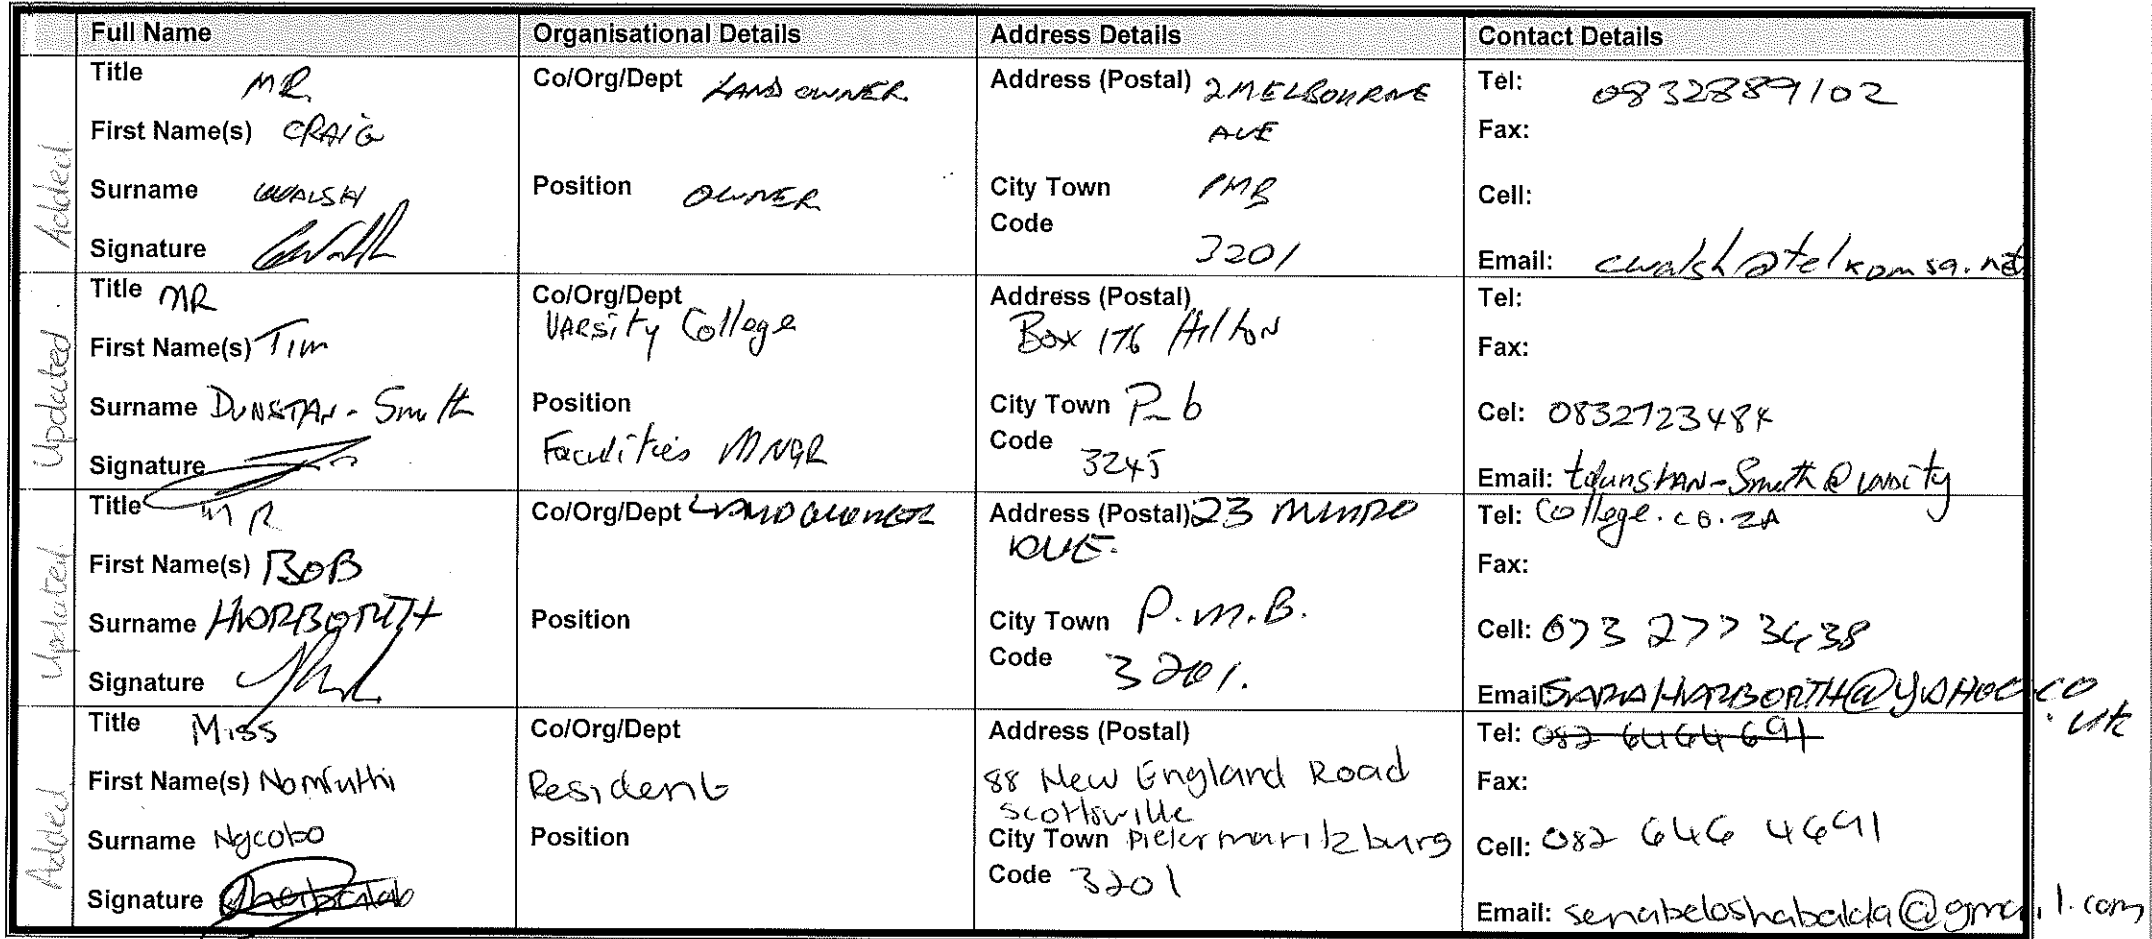 Full Name Organisational Details Address Details Contact Details
Added
Title MR
First Name(s) CRAIG
Surname WALSH
Signature
Co/Org/Dept LAND OWNER
Position OWNER
Address (Postal) 2 MELBOURNE
AVE
City Town PMB
Code
3201
Tel: 0832889102
Fax:
Cell:
Email: cwalsh@telkomsa.net
Updated
Title MR
First Name(s) Tim
Surname DUNSTAN-Smith
Signature
Co/Org/Dept
VARSity College
Position
Facilities MNGR
Address (Postal)
Box 176 Hilton
City Town PMb
Code 3245
Tel:
Fax:
Cel: 0832723484
Email: tdunstan-Smith@varsity
College.co.zA
Updated
Title MR
First Name(s) BOB
Surname HARBORTH
Signature
Co/Org/Dept LANDOWNER
Position
Address (Postal) 23 MUNRO
AVE.
City Town P.M.B.
Code 3201.
Tel:
Fax:
Cell: 073 277 3438
Email: SARAHARBORTH@YAHOO.CO
.UK
Added
Title Miss
First Name(s) Nomfuthi
Surname Ngcobo
Signature
Co/Org/Dept
Resident
Position
Address (Postal)
88 New England Road
Scottsville
City Town Pietermaritzburg
Code 3201
Tel: 082 6464 691
Fax:
Cell: 082 646 4691
Email: senabeloshabalala@gmail.com